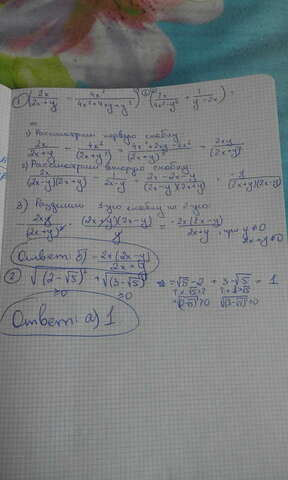 1) (2x/(2x+y) - 4x²/(4x²+4xy+y²)) : (2x/(4x²-y²) + 1/(y-2x)) =
1) Рассмотрим первую скобку:
2x/(2x+y) - 4x²/(2x+y)² = (4x²+2xy-4x²)/(2x+y)² = 2xy/(2x+y)²
2) Рассмотрим вторую скобку:
2x/((2x-y)(2x+y)) - 1/(2x-y) = (2x-2x-y)/((2x-y)(2x+y)) = -y/((2x+y)(2x-y))
3) Разделим 1-ую скобку на 2-ую:
-2xy/(2x+y)² · (2x+y)(2x-y)/y = -2x(2x-y)/(2x+y), при y≠0
2x+y≠0
Ответ: б) -2x(2x-y)/(2x+y)
2) √(2-√5)² + √(3-√5)² = √5-2 + 3-√5 = 1
≥0 ≥0
Ответ: а) 1